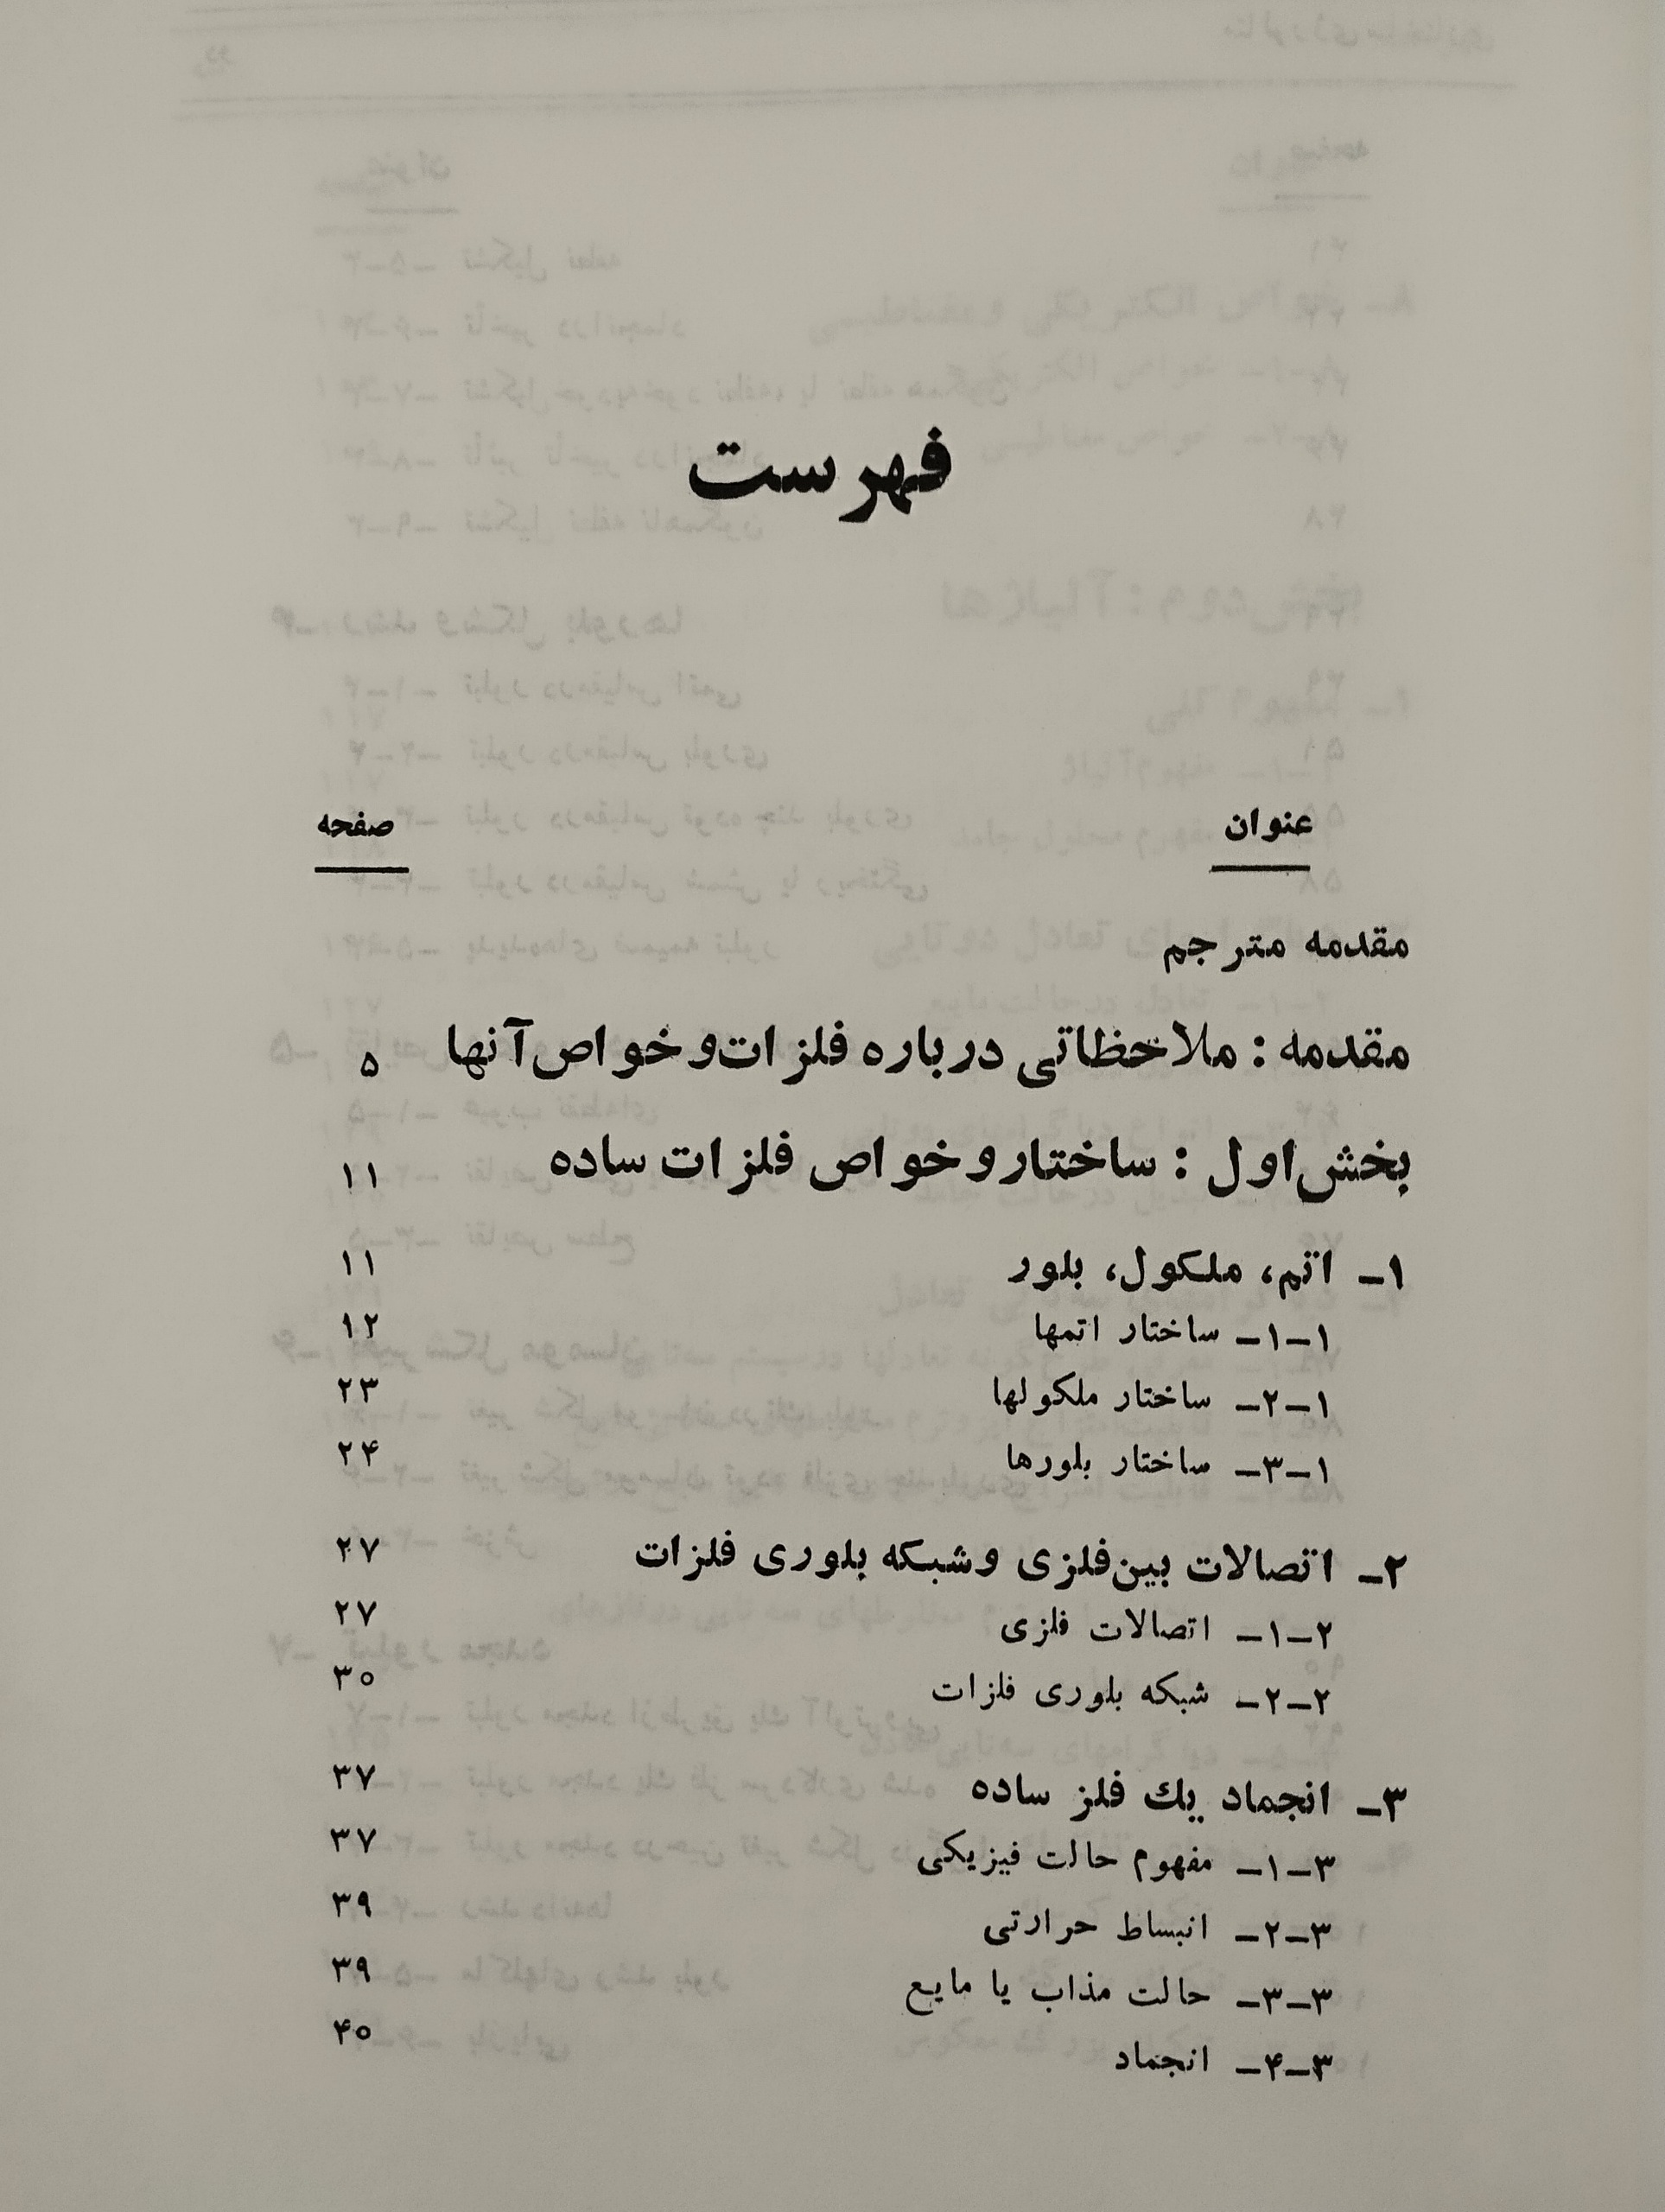 فهرست
عنوان صفحه
مقدمه مترجم
مقدمه : ملاحظاتی درباره فلزات و خواص آنها ۵
بخش اول : ساختار و خواص فلزات ساده ۱۱
۱- اتم، ملکول، بلور ۱۱
۱-۱- ساختار اتمها ۱۲
۱-۲- ساختار ملکولها ۲۳
۱-۳- ساختار بلورها ۲۴
۲- اتصالات بین‌فلزی و شبکه بلوری فلزات ۲۷
۲-۱- اتصالات فلزی ۲۷
۲-۲- شبکه بلوری فلزات ۳۰
۳- انجماد یك فلز ساده ۳۷
۳-۱- مفهوم حالت فیزیکی ۳۷
۳-۲- انبساط حرارتی ۳۹
۳-۳- حالت مذاب یا مایع ۳۹
۳-۴- انجماد ۴۰